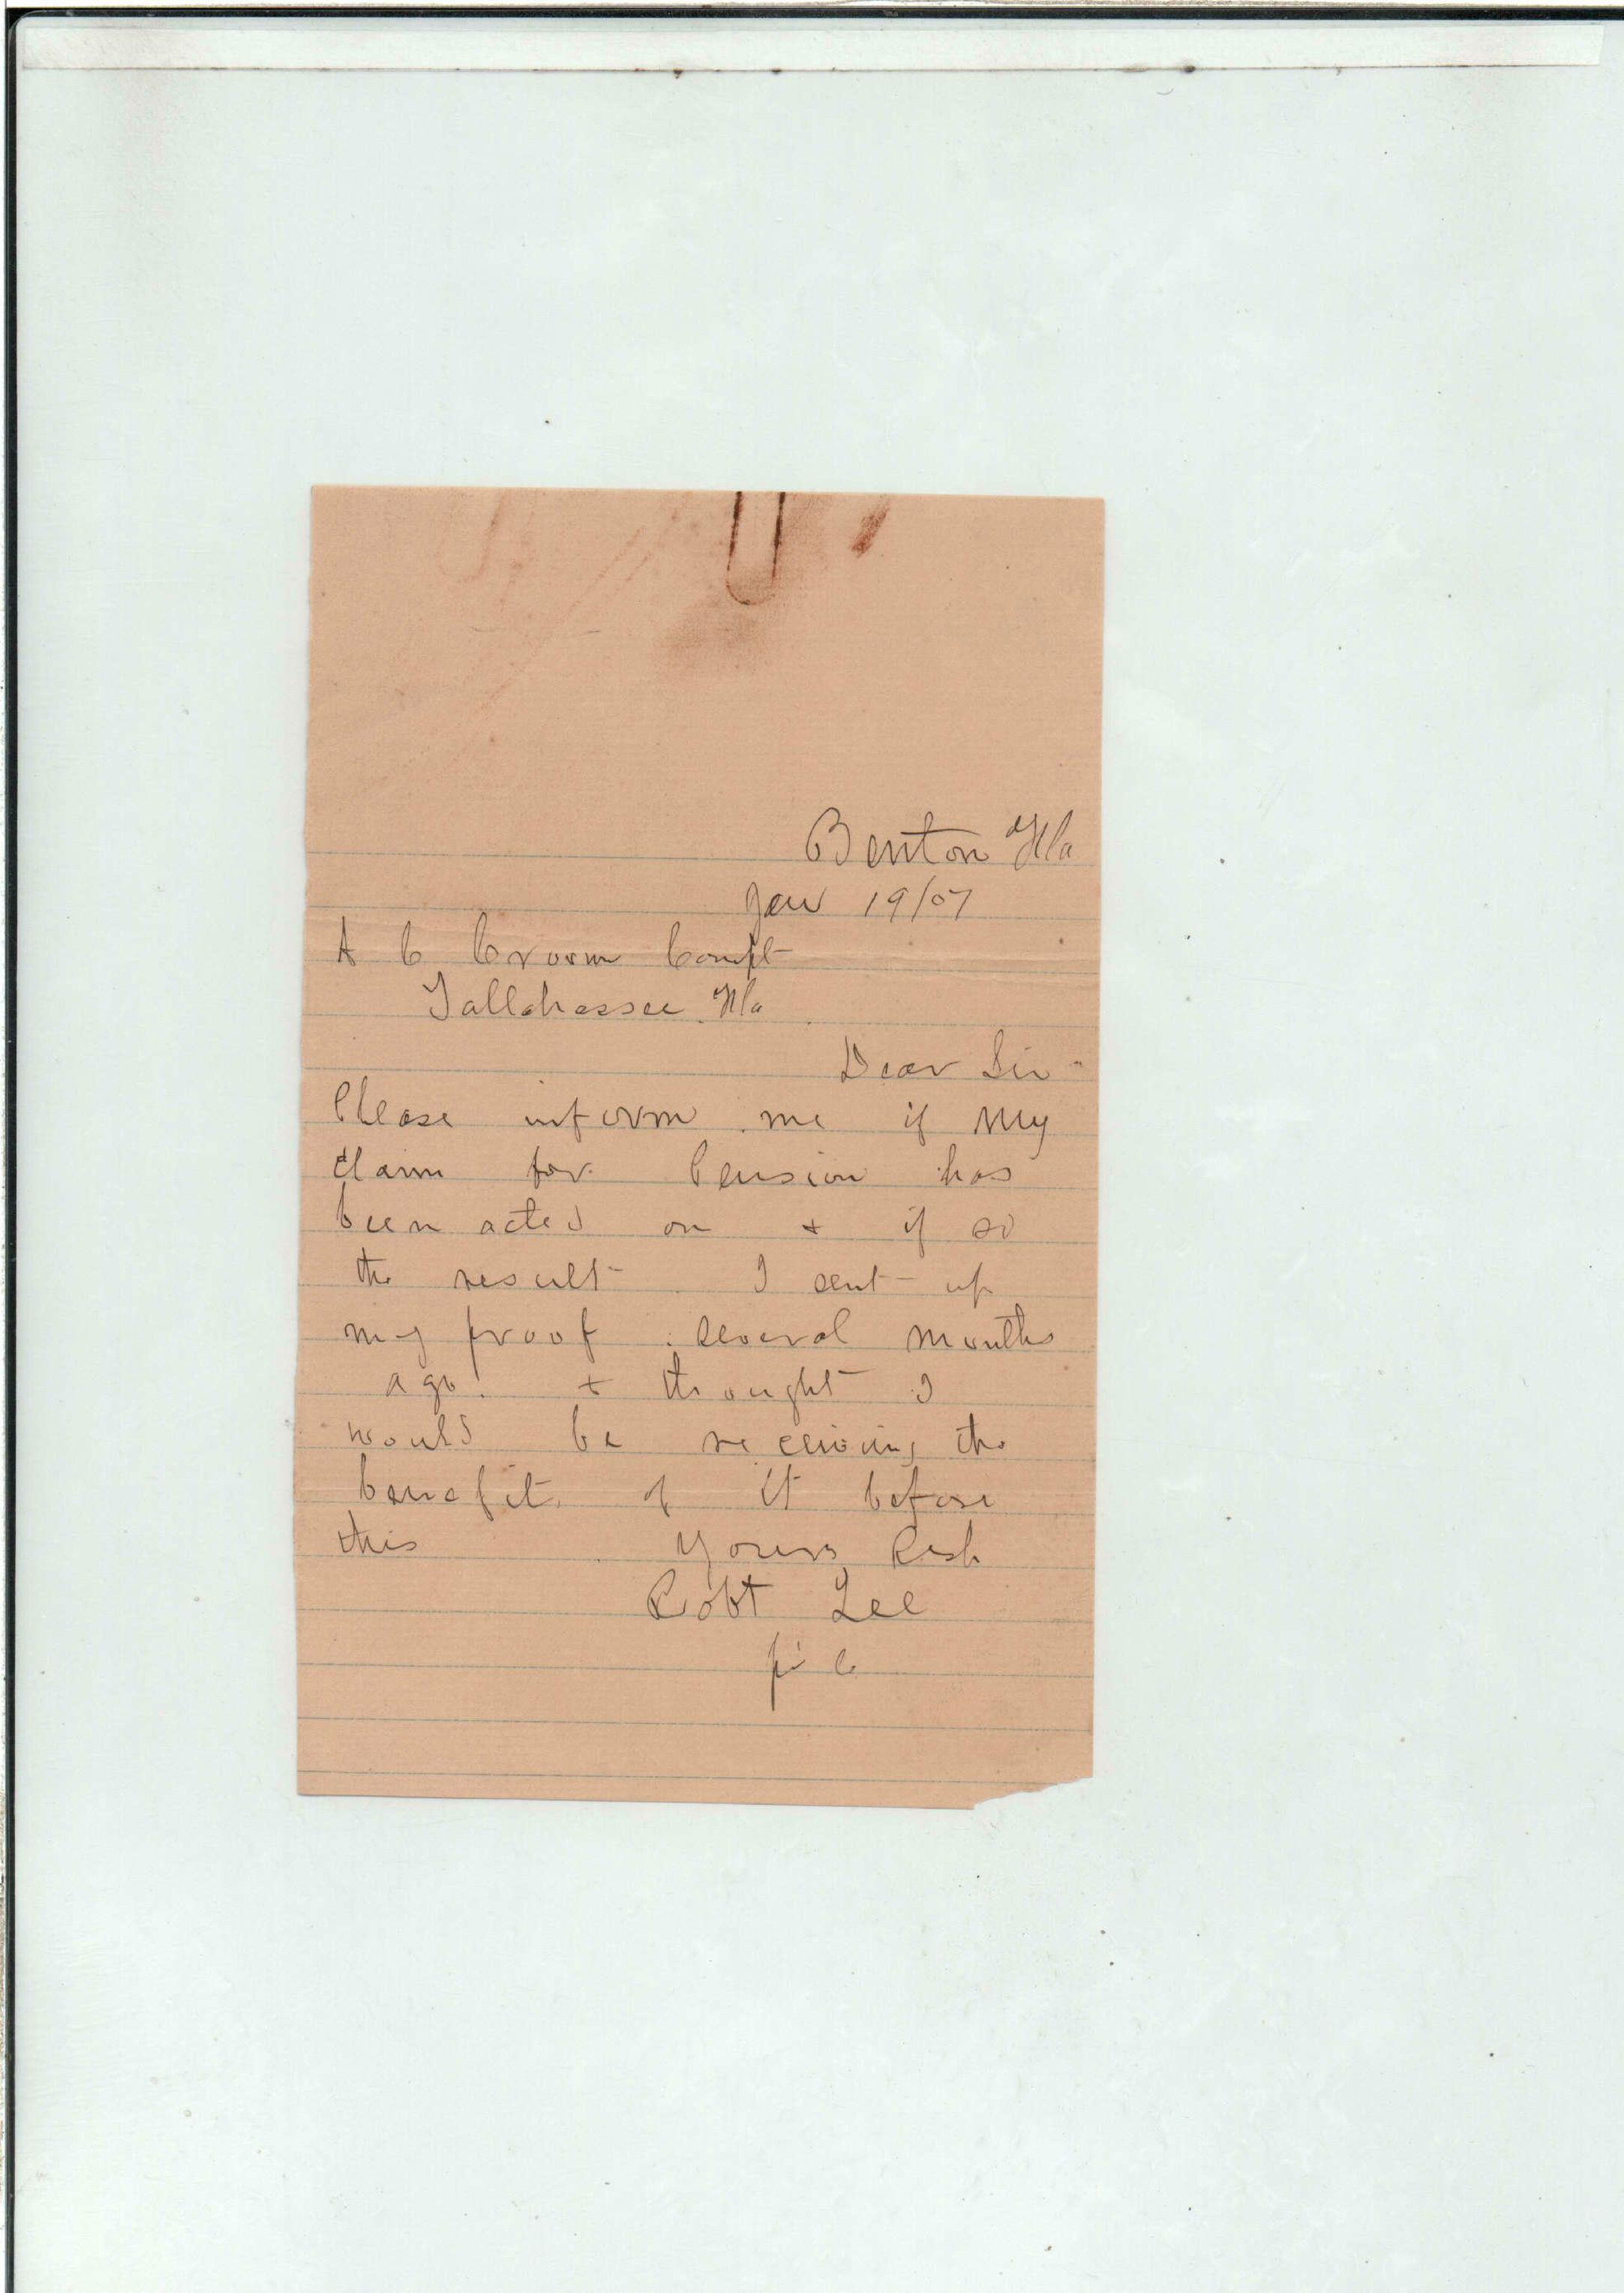 Benton Fla
Jan 19/07
A C Croom Compt
Tallahassee Fla
Dear Sir
Please inform me if My
claim for Pension has
been acted on + if so
the result I sent up
my proof several months
ago. + thought I
would be receiving the
benefit of it before
this Yours Resp
Robt Lee